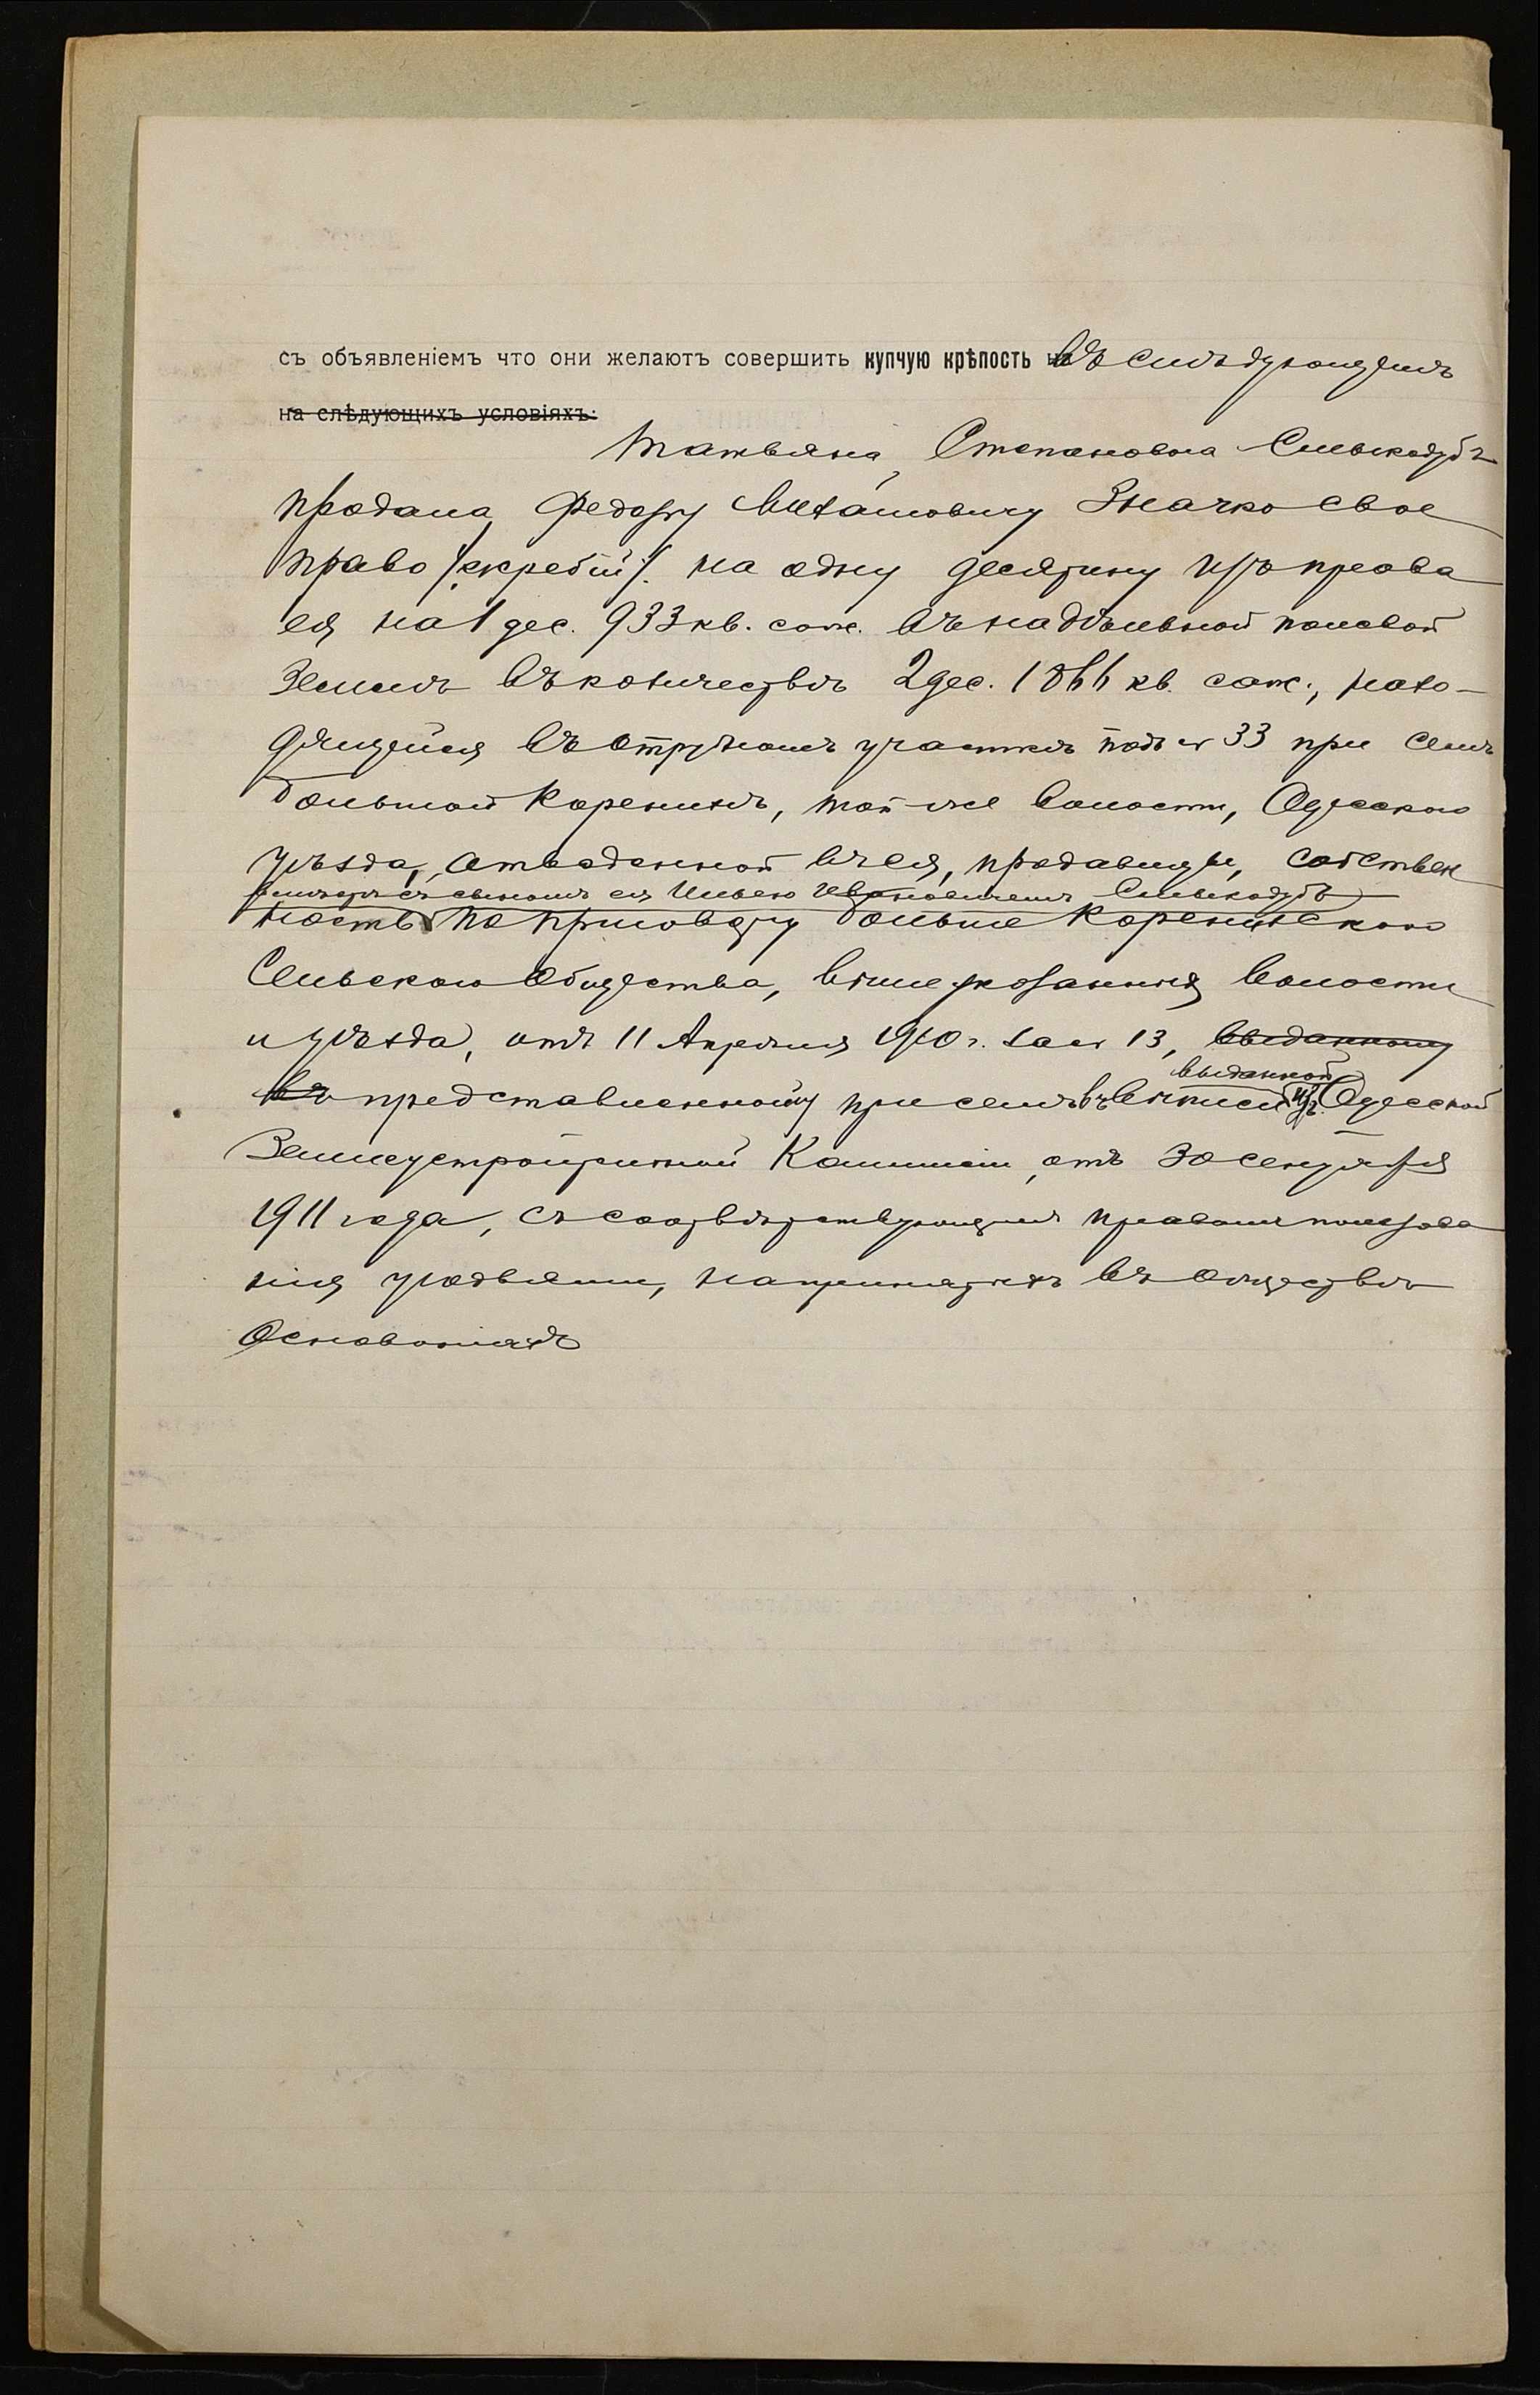 съ объявленіемъ что они желаютъ совершить купчую крѣпость на въ слѣдующемъ
на слѣдующихъ условіяхъ:
Татьяна Степановна Слѣпкодубъ
продала Федору Михайловичу Значко свое
право /жребій/ на одну десятину изъ права
ея на 1 дес. 933 кв. саж. въ надѣльной полевой
землѣ въ количествѣ 2 дес. 1866 кв. саж., нахо-
дящейся въ отрубномъ участкѣ подъ № 33 при селѣ
Большой Коренихѣ, той-же волости, Одесскаго
уѣзда, отведенной въ ея, продавицы, собствен
вмѣстѣ съ сыномъ ея
ность по приговору Больше Коренихскаго
Сельскаго Общества, вышеуказанныя волости
и уѣзда, отъ 11 Апрѣля 1910 г. за № 13, выданному
выданной
въ представленному при семъ въ выписи изъ Одесской
Землеустроительной Комиссіи, отъ 30 сентября
1911 года, съ соотвѣтствующимъ правомъ пользова
нія угодьями, на принятыхъ въ обществѣ
основаніяхъ